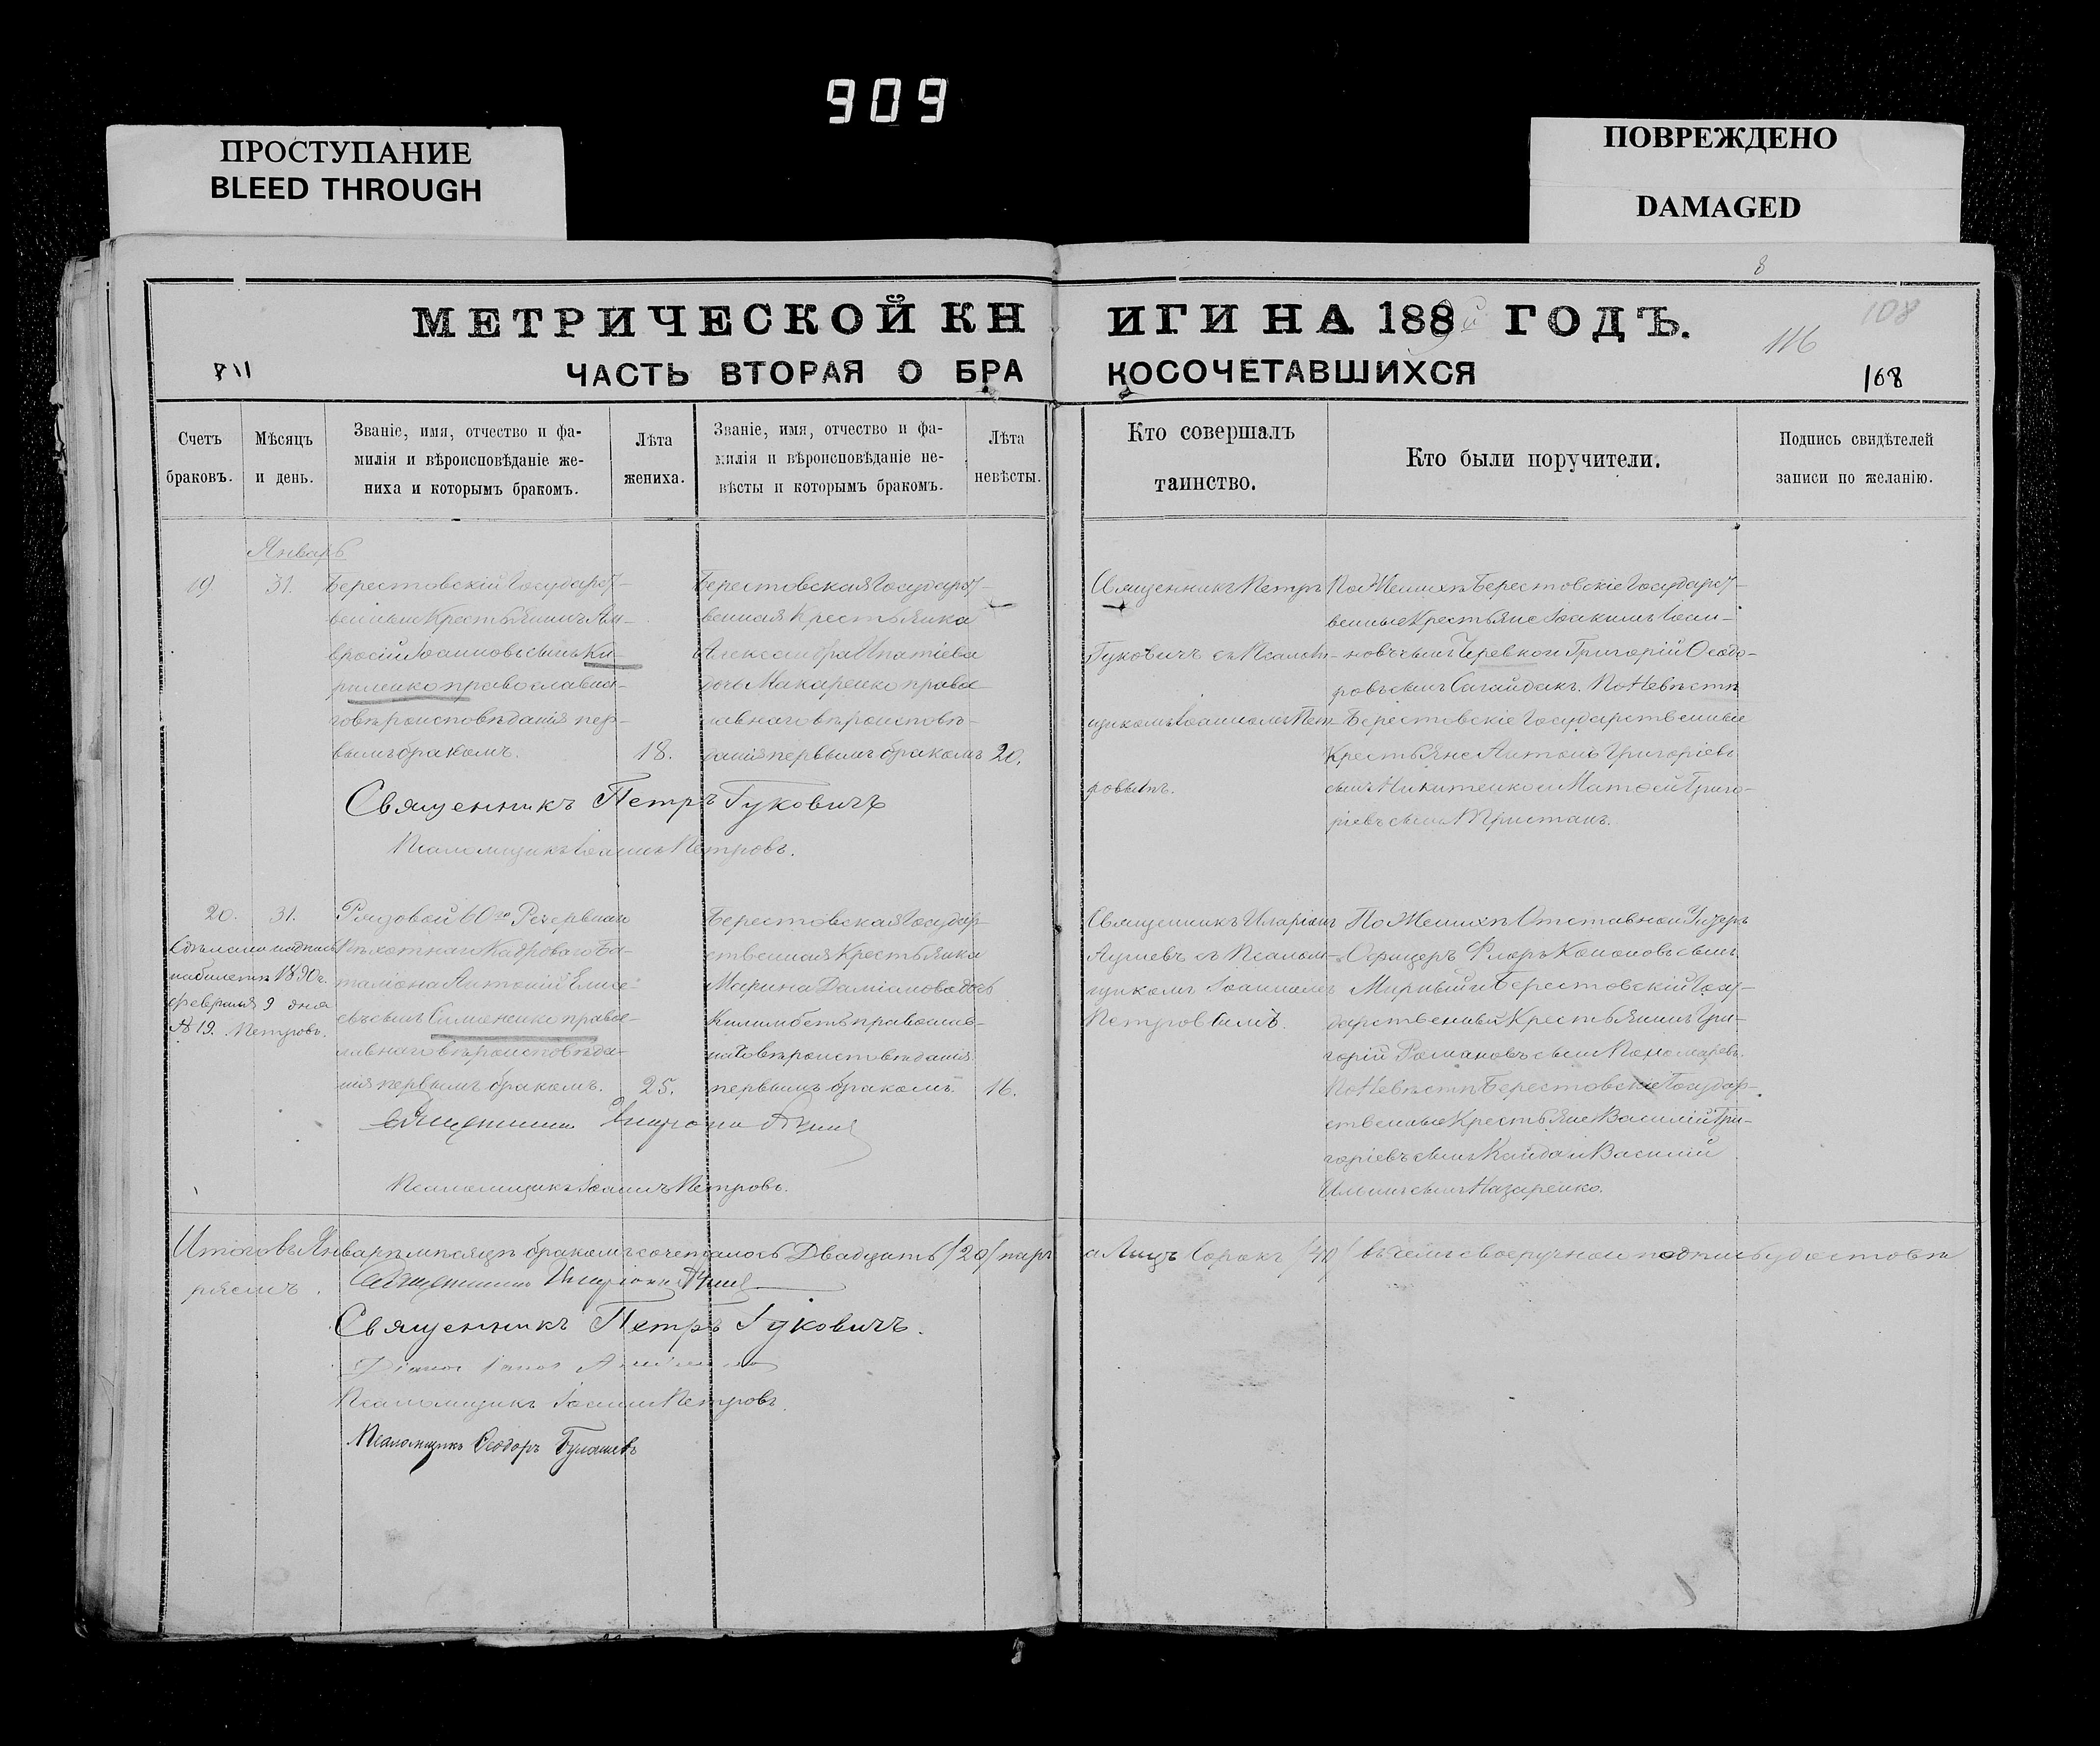 909
ПРОСТУПАНИЕ
BLEED THROUGH
ПОВРЕЖДЕНО
DAMAGED
8
МЕТРИЧЕСКОЙ КНИГИ НА 1889й ГОДЪ.
108
116
ЧАСТЬ ВТОРАЯ О БРАКОСОЧЕТАВШИХСЯ
168
Счетъ
браковъ.
Мѣсяцъ
и день.
Званіе, имя, отчество и фа-
милія и вѣроисповѣданіе же-
ниха и которымъ бракомъ.
Лѣта
жениха.
Званіе, имя, отчество и фа-
милія и вѣроисповѣданіе не-
вѣсты и которымъ бракомъ.
Лѣта
невѣсты.
Кто совершалъ
таинство.
Кто были поручители.
Подпись свидѣтелей
записи по желанію.
Январь
19.
31.
Берестовскій Государст-
венные Крестьянинъ Ам-
вросій Іоанновъ сынъ Ки-
риленко православна-
го вѣроисповѣданія пер-
вымъ бракомъ.
18.
Берестовская Государст-
венная Крестьянка
Александра Ипатіева
дочь Макаренко право-
славнаго вѣроисповѣ-
данія первымъ бракомъ
20.
Священникъ Петръ
Гуковичъ съ Псалом-
щикомъ Іоанномъ Пет-
ровымъ.
По Женихѣ Берестовскіе Государст-
венные Крестьяне Іоакимъ Іоан-
новъ сынъ Черевко и Григорій Ѳеодо-
ровъ сынъ Сагайдакъ. По Невѣстѣ
Берестовскіе Государственные
Крестьяне Антоній Григоріевъ
сынъ Никитенко и Матѳей Григо-
ріевъ сынъ Пристанъ.
Священникъ Петръ Гуковичъ
Псаломщикъ Іоаннъ Петровъ.
20.
31.
Сдѣлана надпись
на билетѣ 1890 г.
Февраля 9 дня
№ 19. Петровъ.
Рядовой 60го Резервнаго
Пѣхотнаго Кадроваго Ба-
таліона Антоній Елисе-
евъ сынъ Симоненко право-
славнаго вѣроисповѣда-
нія первымъ бракомъ.
25.
Берестовская Государ-
ственная Крестьянка
Марина Даміанова дочь
Килимбетъ православ-
наго вѣроисповѣданія
первымъ бракомъ.
16.
Священникъ Иларіонъ
съ Псалом-
щикомъ Іоанномъ
Петровымъ.
По Женихѣ Отставной Унтеръ
Офицеръ Флоръ Кононовъ сынъ
и Берестовскій Госу-
дарственный Крестьянинъ Гри-
горій Романовъ сынъ Пономаревъ.
По Невѣстѣ Берестовскіе Государ-
ственные Крестьяне Василій Гри-
горіевъ сынъ Кайда и Василій
сынъ Назаренко.
Священникъ Иларіонъ
Псаломщикъ Іоаннъ Петровъ.
Итого въ Январѣ мѣсяцѣ бракомъ сочеталось Двадцать /20/ паръ а Лицъ Сорокъ /40/ въ чемъ своеручною подписью удостовѣ-
ряемъ.
Священникъ Иларіонъ
Священникъ Петръ Гуковичъ.
Псаломщикъ Іоаннъ Петровъ.
Псаломщикъ Ѳеодоръ